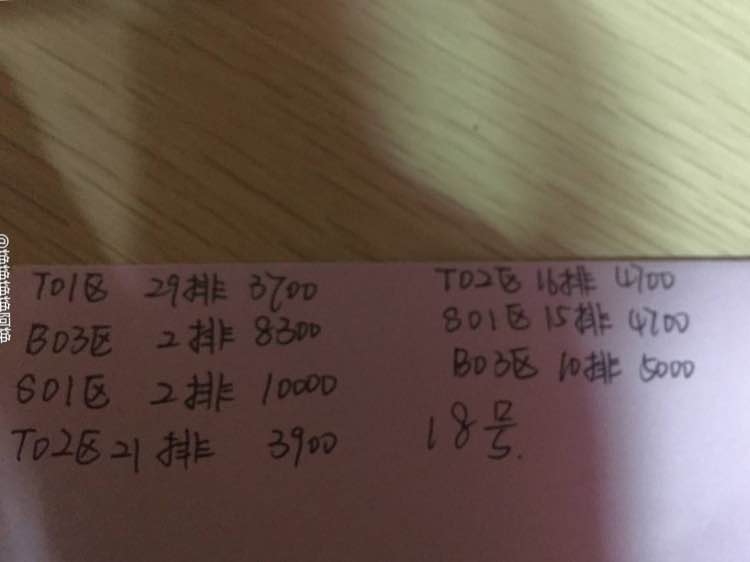 T01区 29排 3700
B03区 2排 8300
S01区 2排 10000
T02区 21排 3900
T02区 16排 4700
801区 15排 4700
B03区 10排 5000
18号.